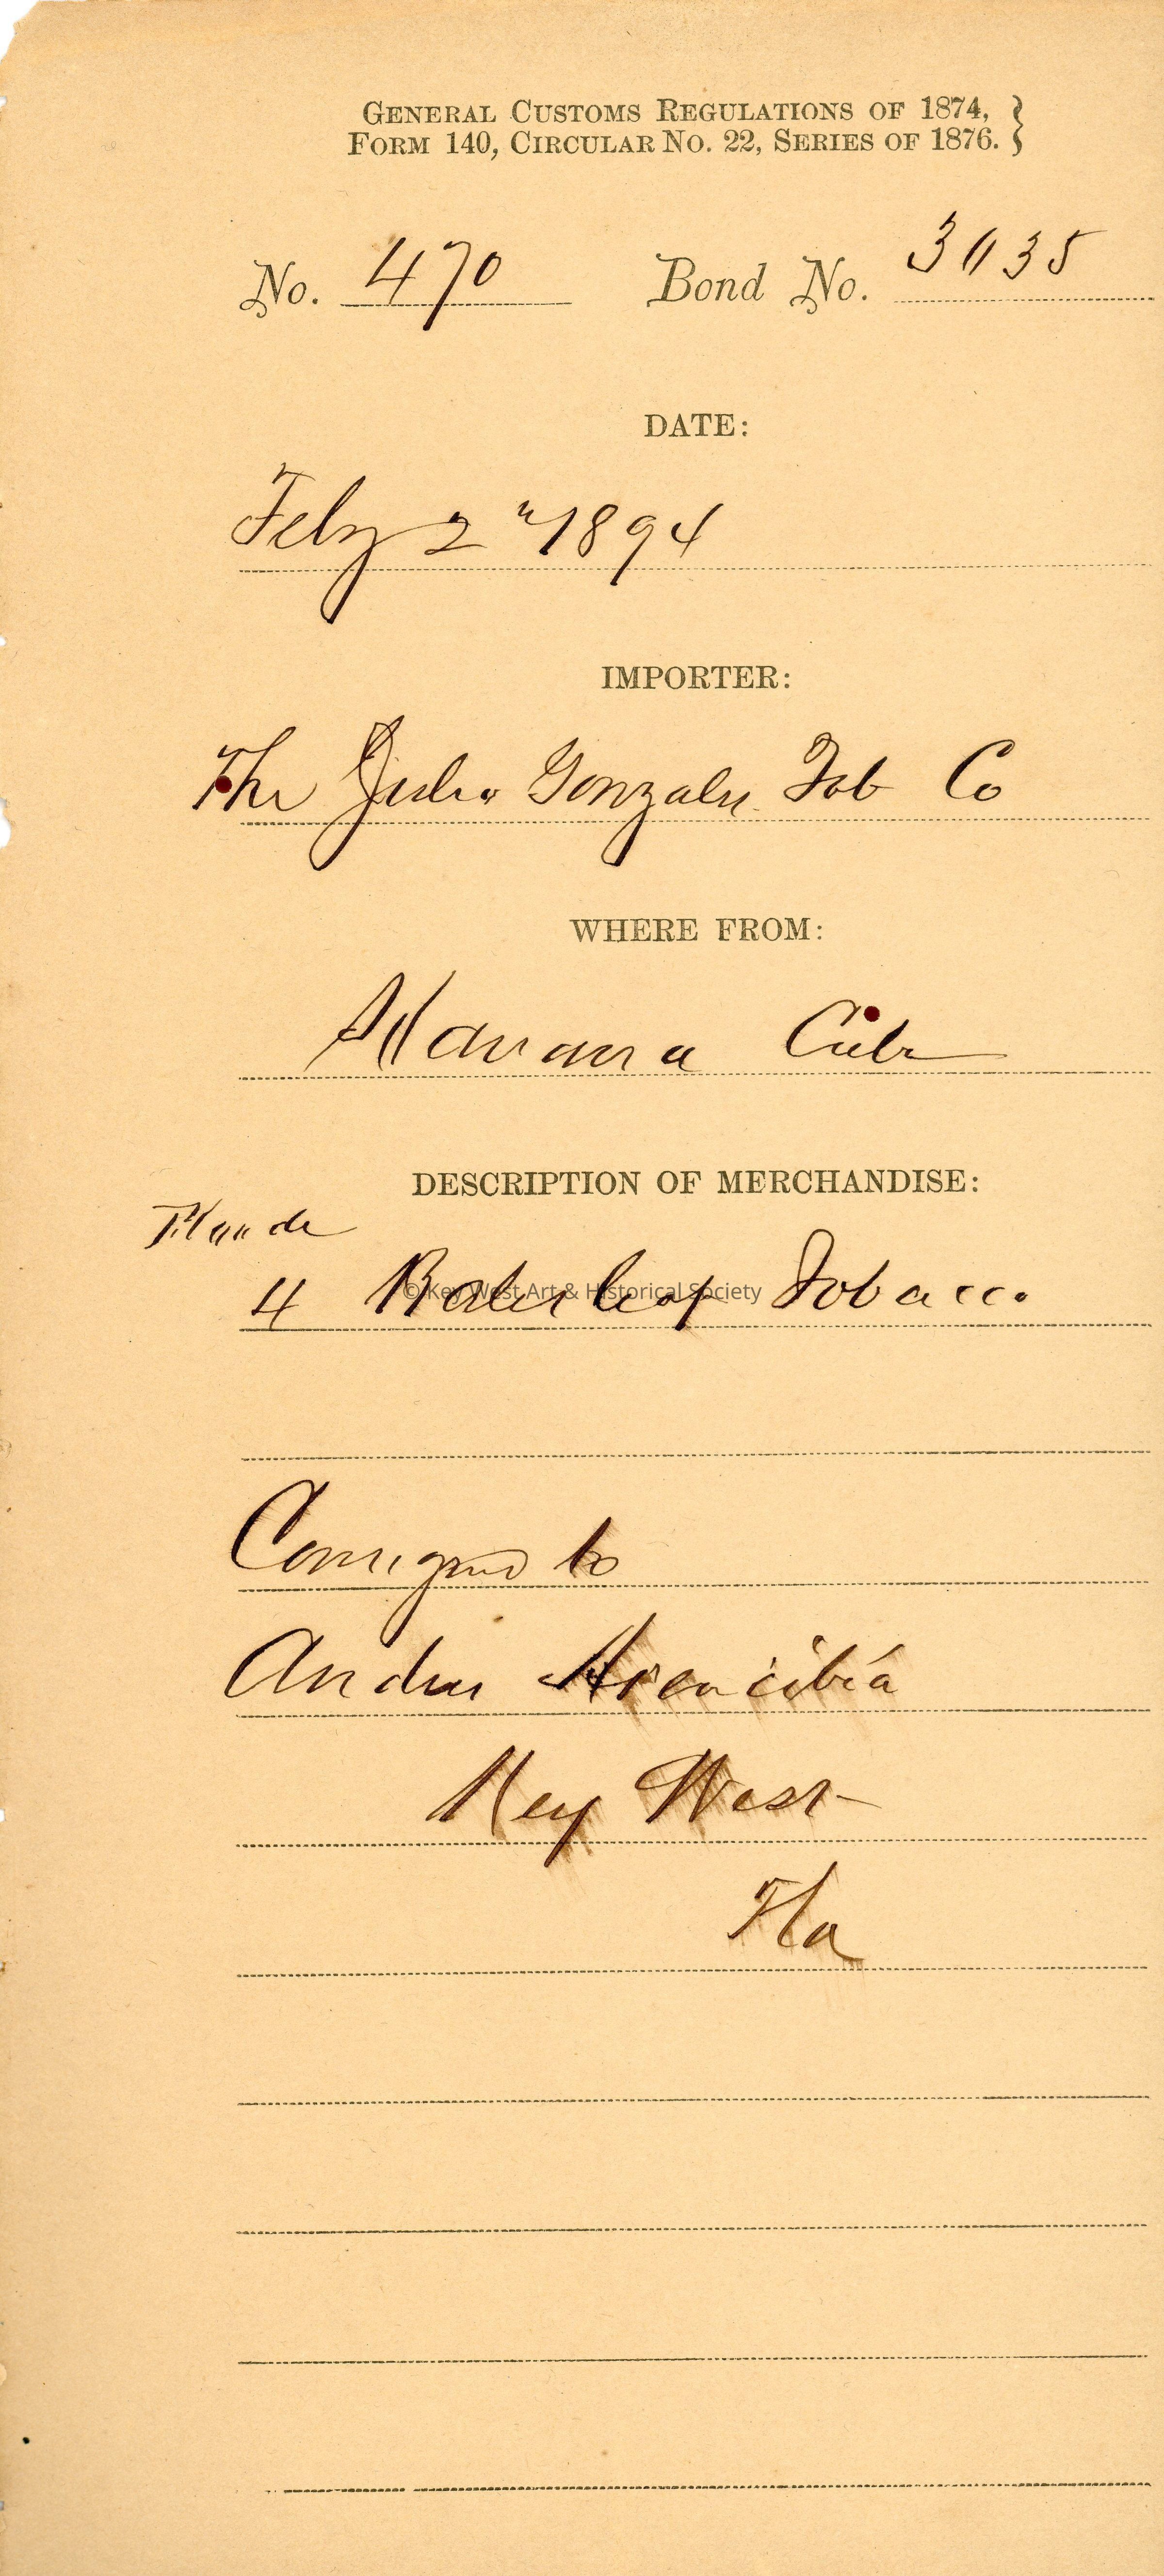 GENERAL CUSTOMS REGULATIONS OF 1874, }
FORM 140, CIRCULAR NO. 22, SERIES OF 1876. }
No. 470 Bond No. 3035
DATE:
Feby 2" 1894
IMPORTER:
The Julio Gonzales Tob Co
WHERE FROM:
Havana Cuba
DESCRIPTION OF MERCHANDISE:
4 Bales leaf Tobacco
© Key West Art & Historical Society
Consigned to
Andres Arencibia
Key West
Fla